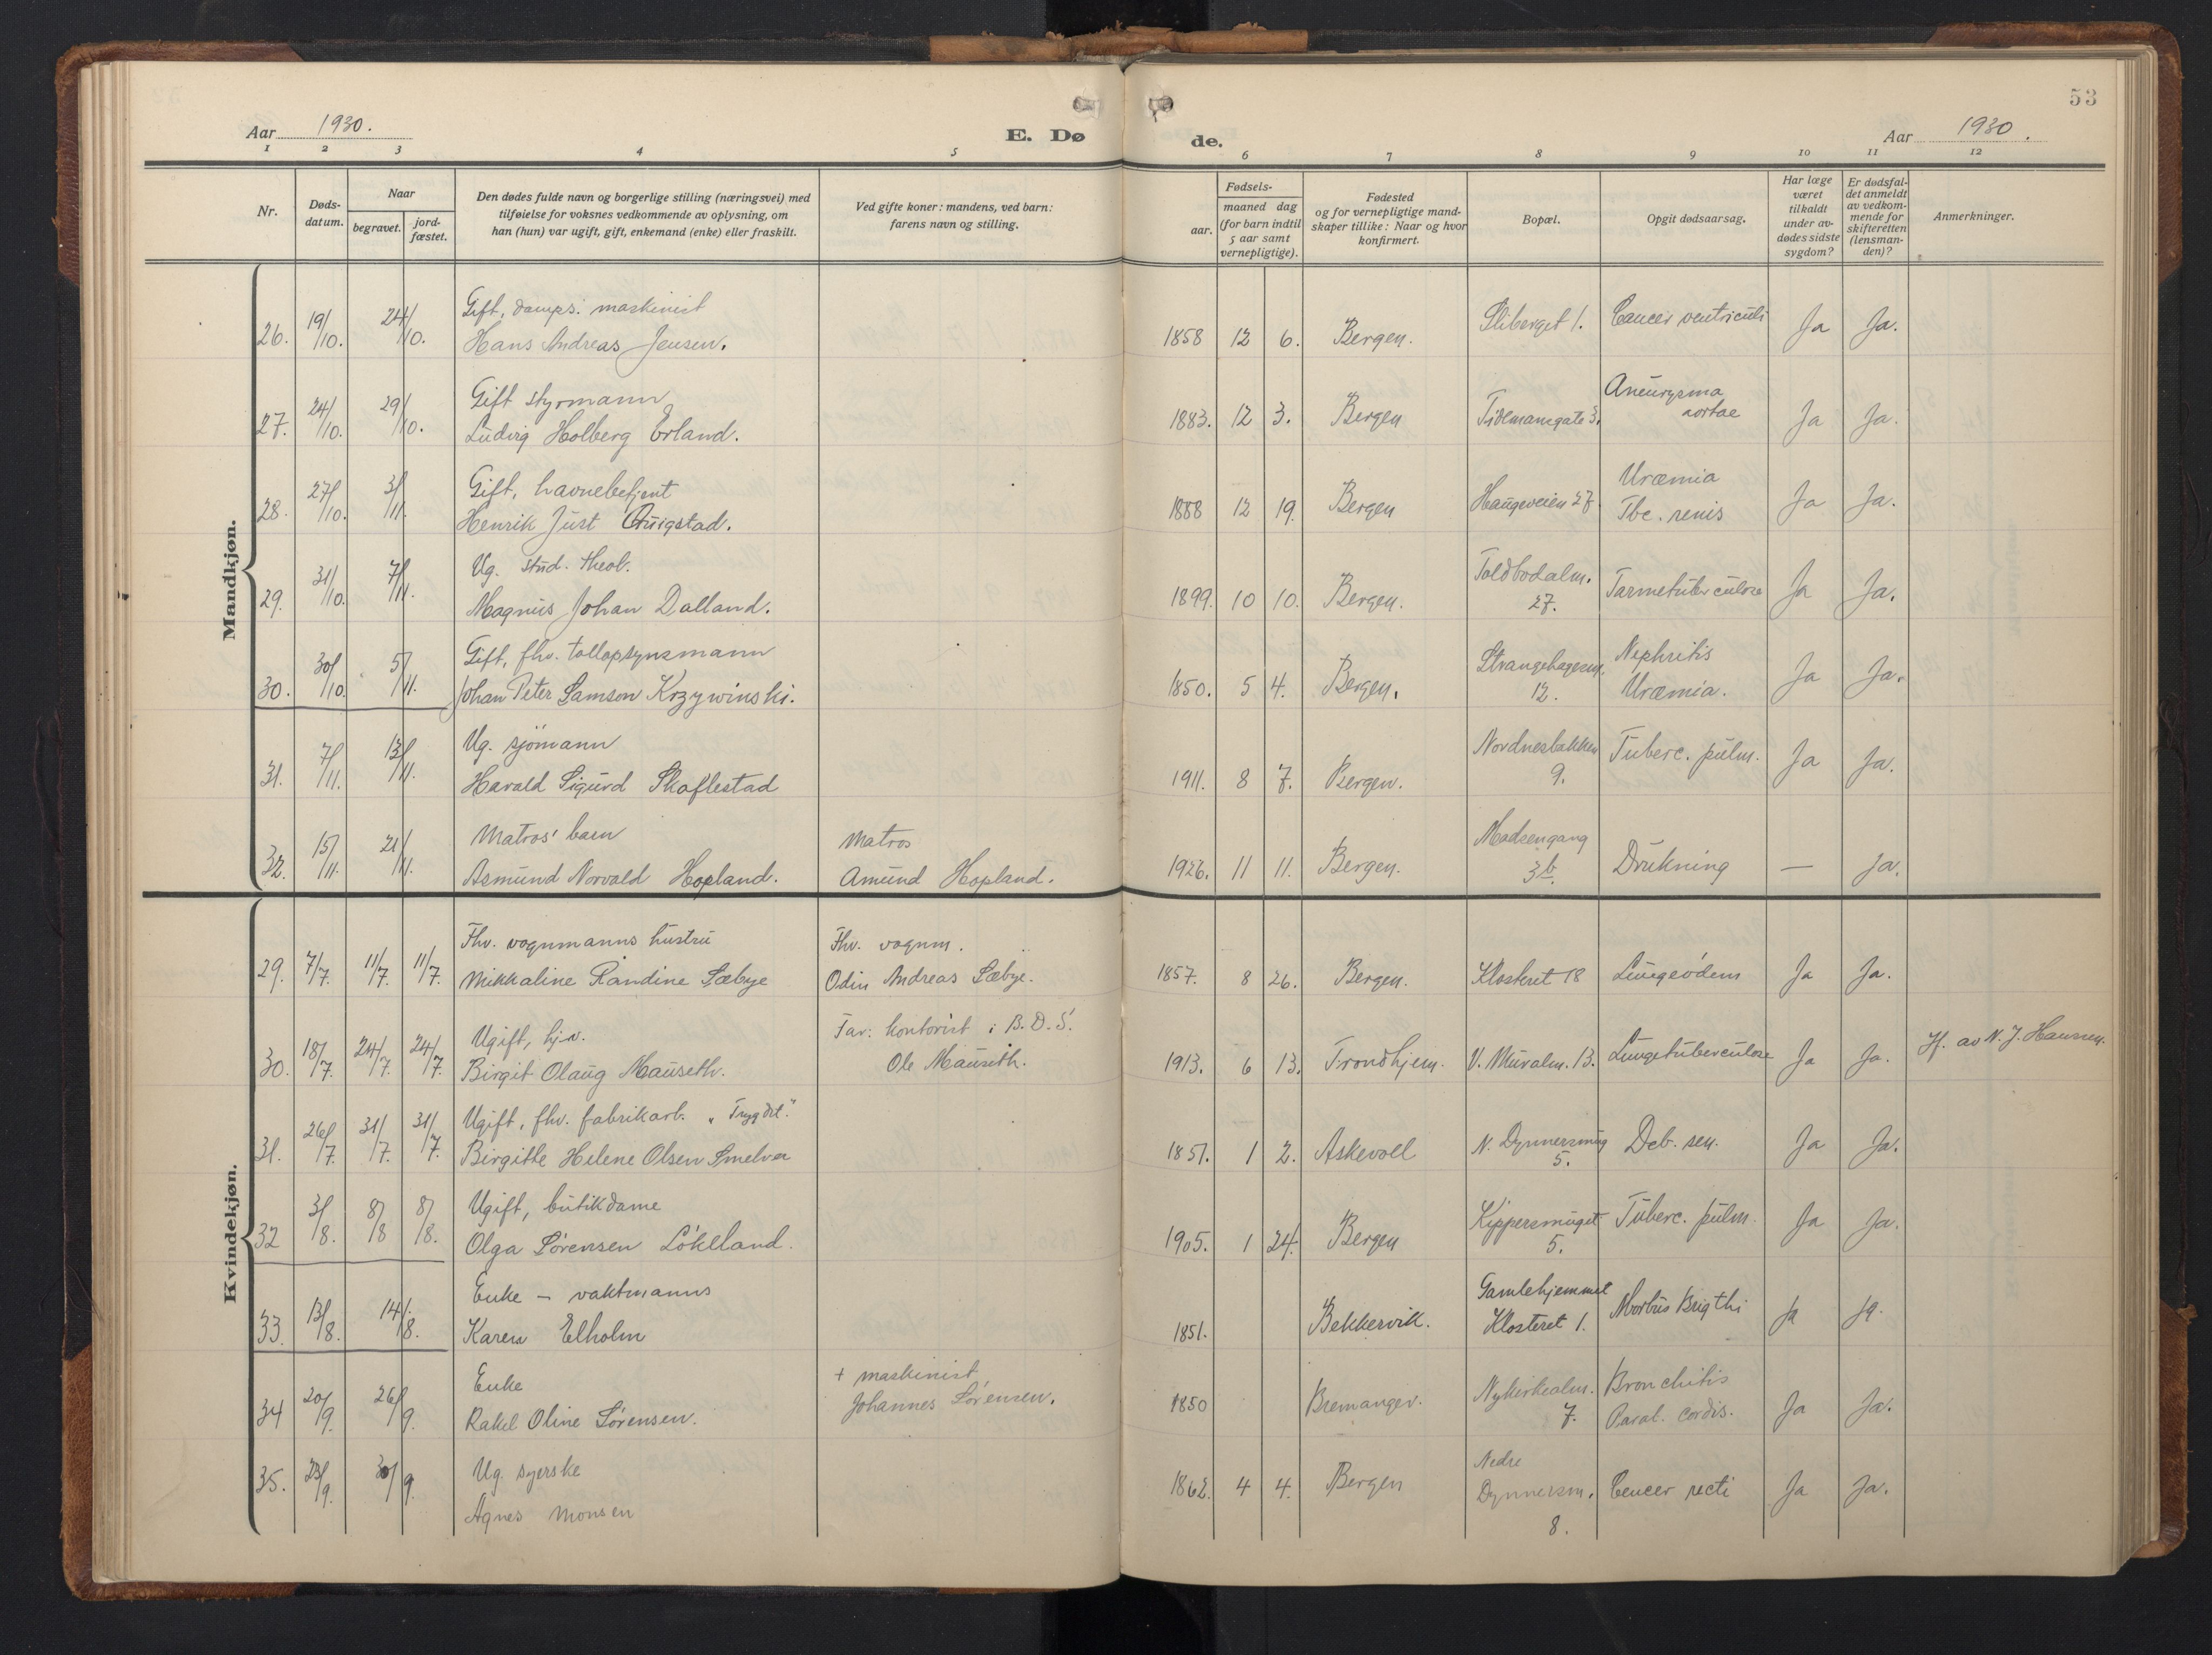 53
Aar 1930.
E. Døde.
Aar 1930.
1 2 3 4 5 6 7 8 9 10 11 12
Nr.
Døds-
datum.
Naar
begravet.
jord-
fæstet.
Den dødes fulde navn og borgerlige stilling (næringsvei) med
tilføielse for voksnes vedkommende av oplysning, om
han (hun) var ugift, gift, enkemand (enke) eller fraskilt.
Ved gifte koner: mandens, ved barn:
farens navn og stilling.
Fødsels-
aar.
maaned dag
(for barn indtil
5 aar samt
vernepligtige).
Fødested
og for vernepligtige mand-
skaper tillike: Naar og hvor
konfirmert.
Bopæl.
Opgit dødsaarsag.
Har læge
været
tilkaldt
under av-
dødes sidste
sygdom?
Er dødsfal-
det anmeldt
av vedkom-
mende for
skifteretten
(lensman-
den)?
Anmerkninger.
Mandkjøn.
Gift, damps. maskinist Sliberget 1. Cancer ventriculi
26. 19/10. 24/10. Hans Andreas Jensen. 1858 12 6. Bergen. Ja Ja.
Gift styrmann Aneurysma
27. 24/10. 29/10. Ludvig Holberg Erland. 1883. 12 3. Bergen Tidemansgate 3. aortae Ja Ja.
Gift, havnebetjent Uræmia
28. 27/10. 3/11. Henrik Just Quigstad. 1888 12 19. Bergen Haugeveien 27 Tbc. renis Ja Ja.
Ug. stud. theol. Toldbodalm.
29. 31/10. 7/11. Magnus Johan Dalland. 1899. 10 10. Bergen. 27. Tarmetuberculose Ja Ja.
Gift, fhv. tollopsynsmann Strangehagen Nephritis
30. 30/10. 5/11. Johan Peter Samson Krzywinski. 1850. 5 4. Bergen. 12. Uræmia. Ja Ja.
Ug. sjömann Nordnesbakken Tuberc. pulm.
31. 7/11. 13/11. Harald Sigurd Skaflestad 1911. 8 7. Bergen. 9. Ja Ja.
Matros' barn Matros Madsengang
32. 15/11. 21/11. Asmund Norvald Hopland. Amund Hopland. 1926. 11 11. Bergen. 3b. Drukning — Ja.
Kvindekjøn.
Fhv. vognmanns hustru Fhv. vognm.
29. 7/7. 11/7. 11/7. Mikkaline Randine Sæbye Odin Andreas Sæbye. 1857. 8 26. Bergen. Klosteret 18 Lungeödem Ja Ja.
Ugift, hj.v. Far: kontorist i B.D.S.
30. 18/7. 24/7. 24/7. Birgit Olaug Mauseth. Ole Mauseth. 1913. 6 13. Trondhjem. V. Muralm. 13. Lungetuberculose Ja Ja. Jf. av N. J. Hansen.
Ugift, fhv. fabrikarb. "Trygdet."
31. 26/7. 31/7. 31/7. Birgitte Helene Olsen Smelver 1851. 1 2. Askevoll N. Dynnersmug 5. Deb. sen. Ja Ja.
Ugift, butikdame
32 3/8. 8/8 8/8. Olga Sörensen Lökeland. 1905. 1 24. Bergen Kippersmuget 5. Tuberc. pulm. Ja Ja.
Enke – vaktmanns Gamlehjemmet
33. 13/8. 14/8. Karen Elholm 1851. Bekkervik. Klosteret 1. Morbus Brigthi Ja Ja.
Enke + maskinist Bronchitis
34 20/9. 26/9. Rakel Oline Sörensen. Johannes Sörensen. 1850 Bremanger. Nykirkealm. 7. Paral. cordis. Ja Ja.
Ug. syerske Nedre
35. 23/9. 30/9. Agnes Monsen 1862. 4 4. Bergen Dynnersm. 8. Cancer recti Ja Ja.